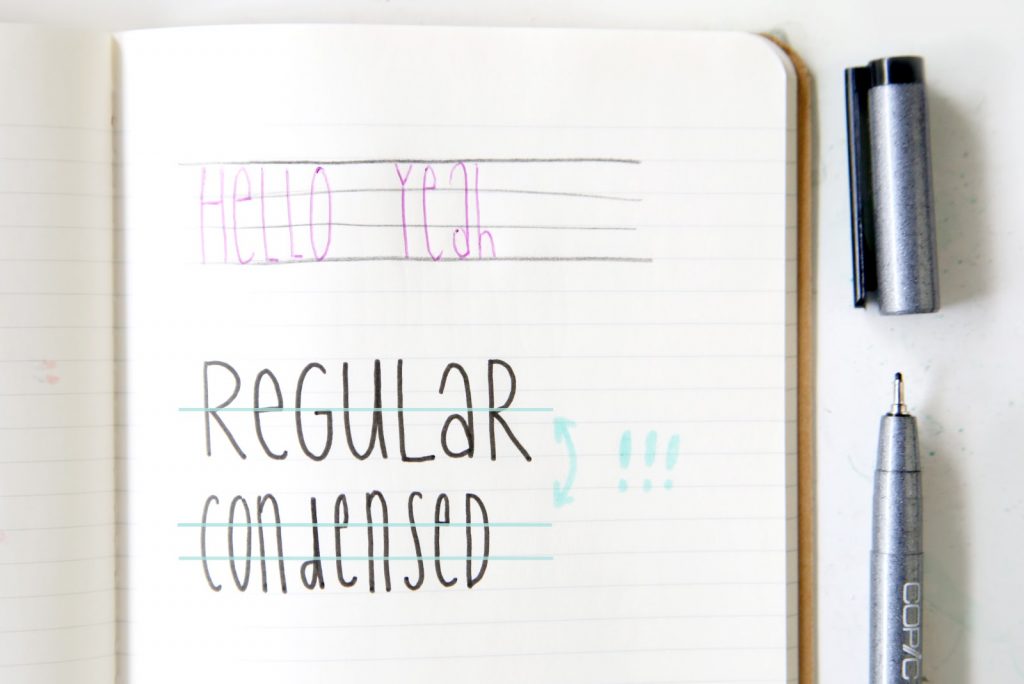 HeLLO Yeah
ReGULaR
!!!
condensed
COPIC